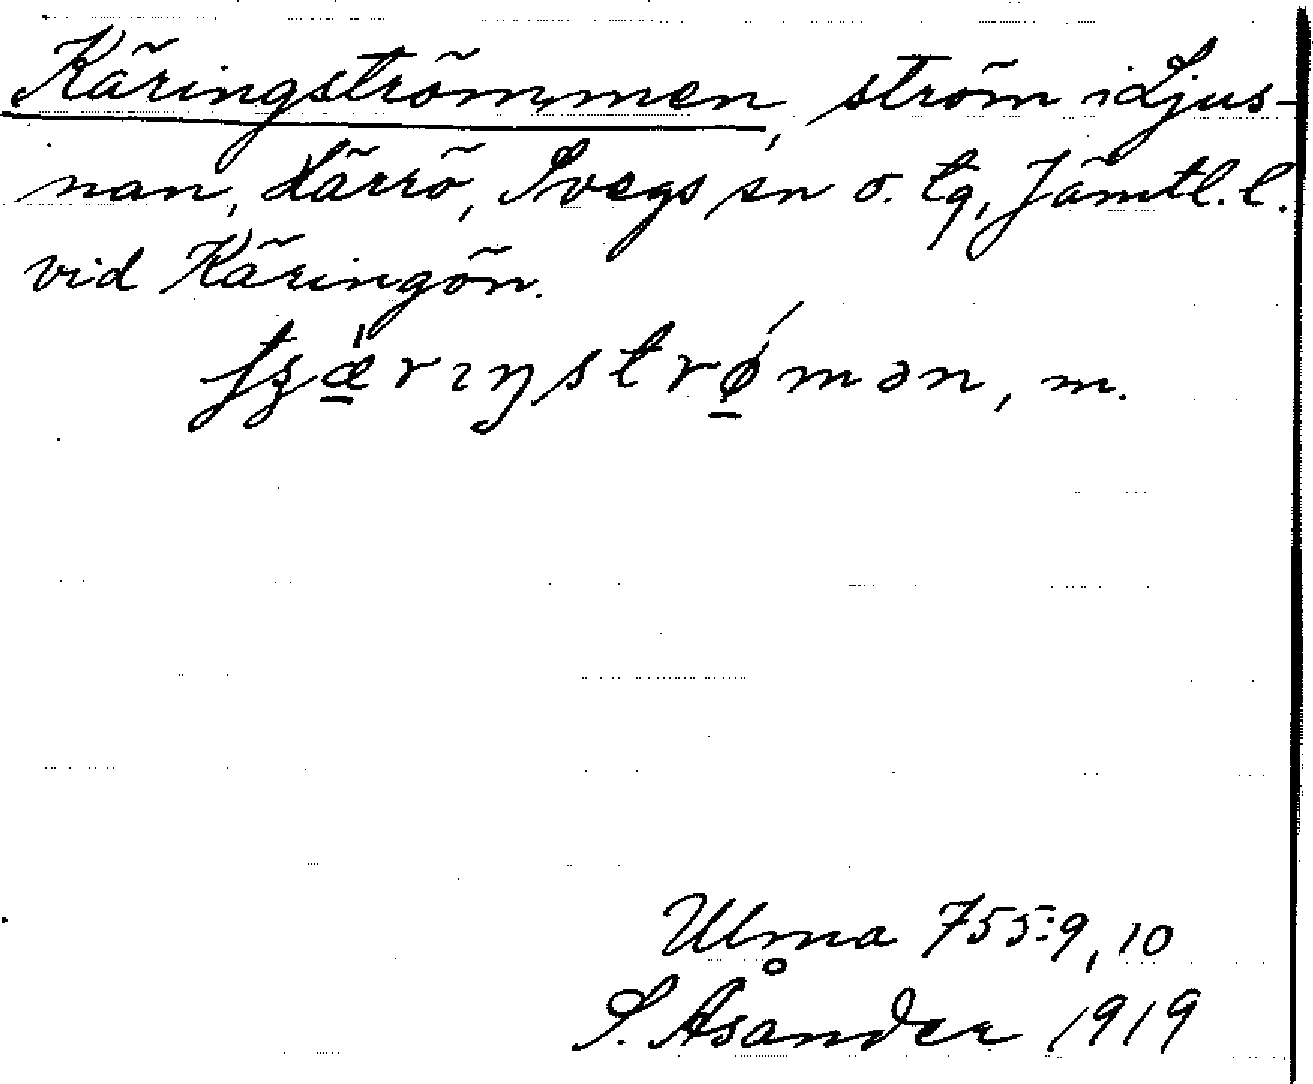 Käringströmmen, ström i Ljus-
nan, Härrö, Svegs sn o. tg, Jämtl. l.
vid Käringön.
m.
Ulma 755:9, 10
S. Åsander 1919